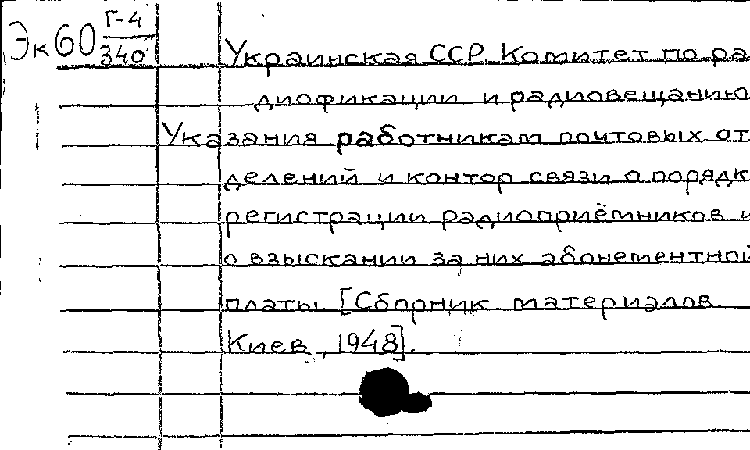 Эк60 Г-4/340
Украинская ССР. Комитет по ра
диофикации и радиовещанию
Указания работникам почтовых от
делений и контор связи о порядк
регистрации радиоприёмников и
о взыскании за них абонементной
платы. [Сборник материалов.
Киев, 1948].